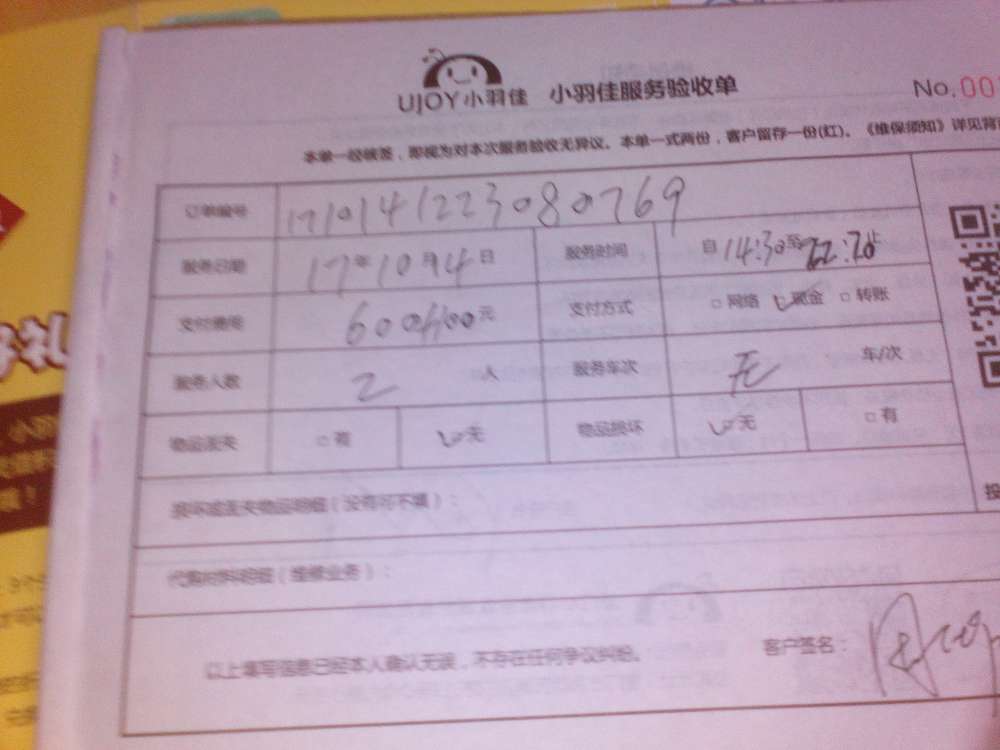 UJOY小羽佳 小羽佳服务验收单 No.00
本单一经核签，即视为对本次服务验收无异议。本单一式两份，客户留存一份(红)。《维保须知》详见背
订单编号 1710141223080769
服务日期 17年10月14日 服务时间 自14:30至22:20止
支付费用 元 支付方式 □网络 现金 □转账
服务人数 2人 服务车次 无 车/次
物品丢失 □有 无 物品损坏 无 □有
损坏或丢失物品明细（没有可不填）：
代购材料明细（维修业务）：
以上填写信息已经本人确认无误，不存在任何争议纠纷。 客户签名：